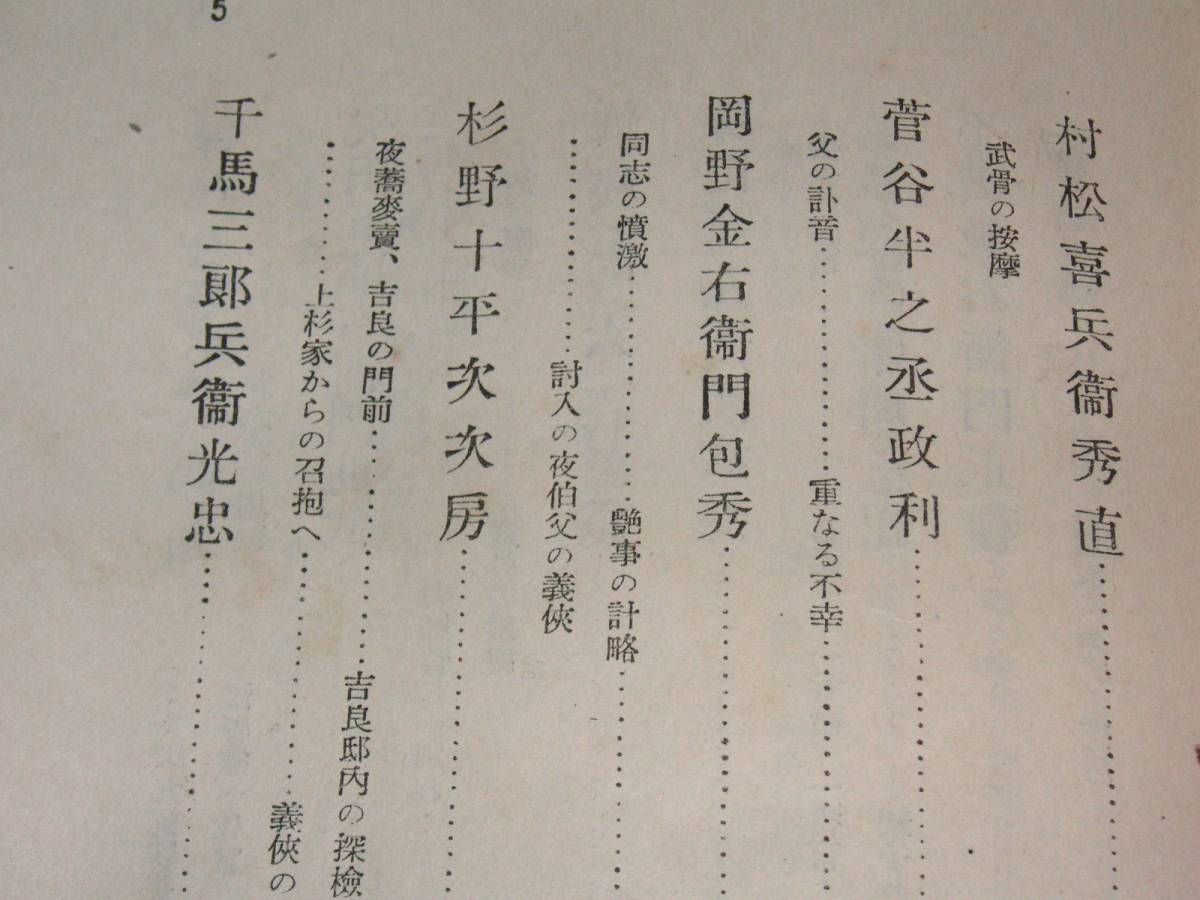 村松喜兵衞秀直……………
武骨の按摩
菅谷半之丞政利……………
父の訃音……………重なる不幸……………
岡野金右衞門包秀……………
同志の憤激……………艶事の計略……………
……………討入の夜伯父の義俠
杉野十平次次房……………
夜蕎麥賣、吉良の門前……………吉良邸內の探檢
……………上杉家からの召抱へ……………義俠の
千馬三郞兵衞光忠……………
5